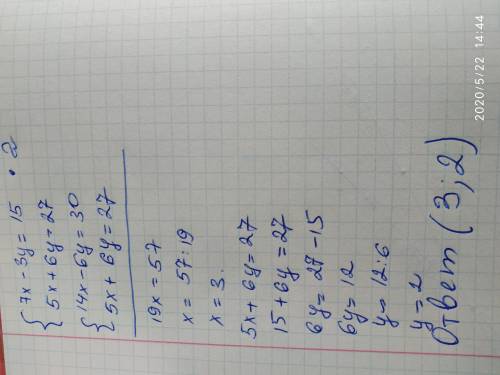 7x - 3y = 15 · 2
5x + 6y = 27
14x - 6y = 30
5x + 6y = 27
19x = 57
x = 57:19
x = 3.
5x + 6y = 27
15 + 6y = 27
6y = 27 - 15
6y = 12
y = 12:6
y = 2
Ответ (3; 2)
2020/5/22 14:44